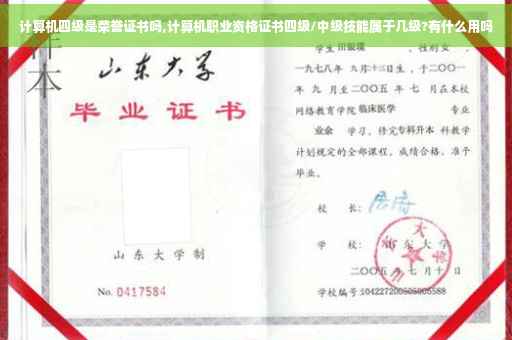 计算机四级是荣誉证书吗,计算机职业资格证书四级/中级技能属于几级?有什么用吗
样本
山东大学
毕业证书
山东大学制
No. 0417584
学生田银瑞 ,性别女 ,
一九七八年 九月十三日生,于二〇〇一
年 九 月至二〇〇五 年 七 月在本校
网络教育学院临床医学 专业
业余 学习,修完专科升本 科教学
计划规定的全部课程,成绩合格,准予
毕业。
校 长:
学 校:山东大学
二〇〇五年七月十日
学校编号:104227200505005588